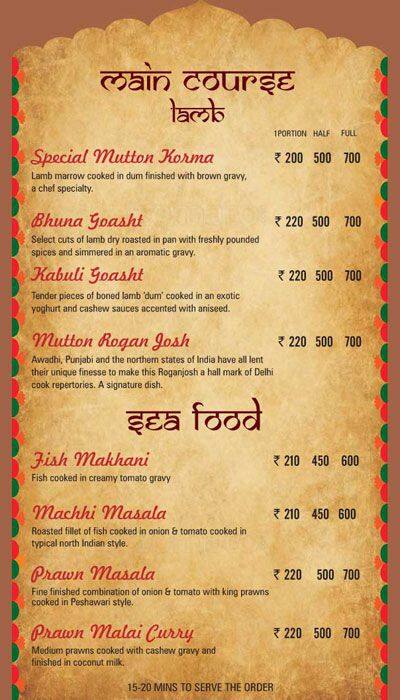 main course
lamb
1PORTION HALF FULL
Special Mutton Korma ₹ 200 500 700
Lamb marrow cooked in dum finished with brown gravy,
a chef specialty.
Bhuna Goasht ₹ 220 500 700
Select cuts of lamb dry roasted in pan with freshly pounded
spices and simmered in an aromatic gravy.
Kabuli Goasht ₹ 220 500 700
Tender pieces of boned lamb 'dum' cooked in an exotic
yoghurt and cashew sauces accented with aniseed.
Mutton Rogan Josh ₹ 220 500 700
Awadhi, Punjabi and the northern states of India have all lent
their unique finesse to make this Roganjosh a hall mark of Delhi
cook repertories. A signature dish.
sea food
Fish Makhani ₹ 210 450 600
Fish cooked in creamy tomato gravy
Machhi Masala ₹ 210 450 600
Roasted fillet of fish cooked in onion & tomato cooked in
typical north Indian style.
Prawn Masala ₹ 220 500 700
Fine finished combination of onion & tomato with king prawns
cooked in Peshawari style.
Prawn Malai Curry ₹ 220 500 700
Medium prawns cooked with cashew gravy and
finished in coconut milk.
15-20 MINS TO SERVE THE ORDER